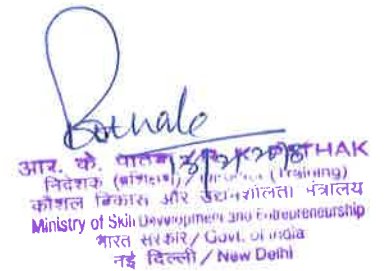 आर. के. पाठक / R. K. PATHAK
निदेशक (प्रशिक्षण) / (Training)
कौशल विकास और उद्यमशीलता मंत्रालय
Ministry of Skill Development and Entrepreneurship
भारत सरकार / Govt. of India
नई दिल्ली / New Delhi